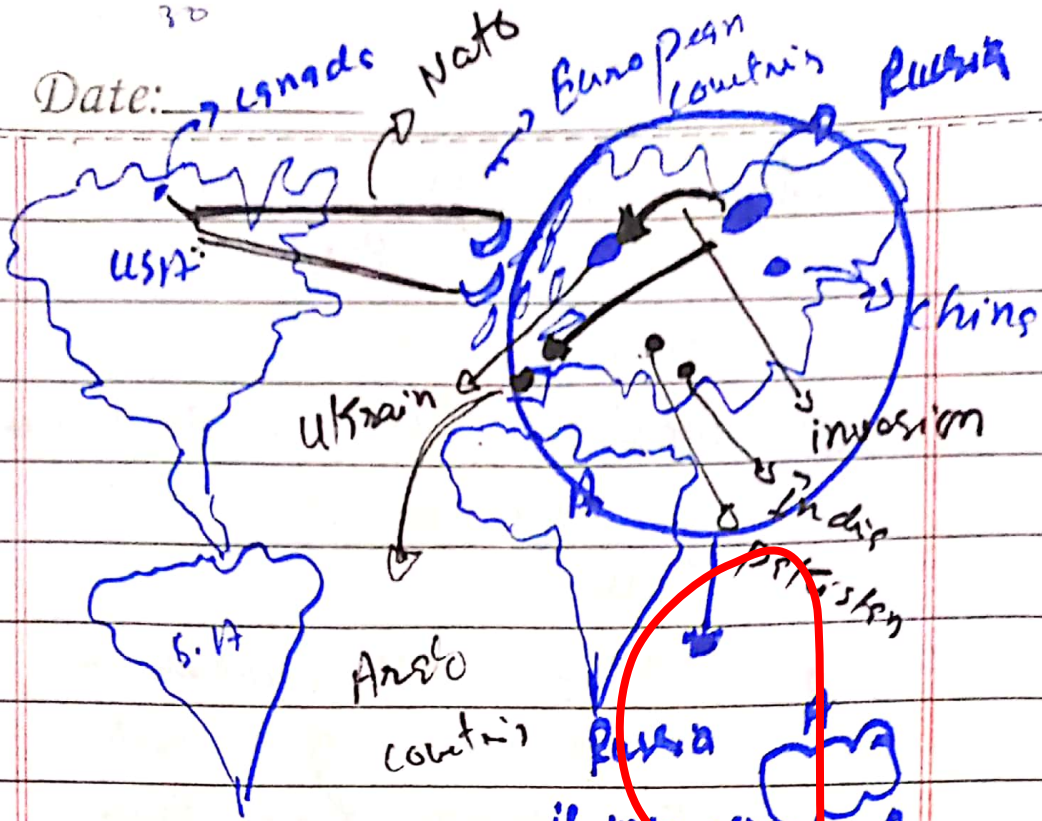 30
Date:
canada
Nato
European
countris
Russia
USA
china
Ukrain
invasion
A
India
pakistan
S.A
Arab
countris
Russia